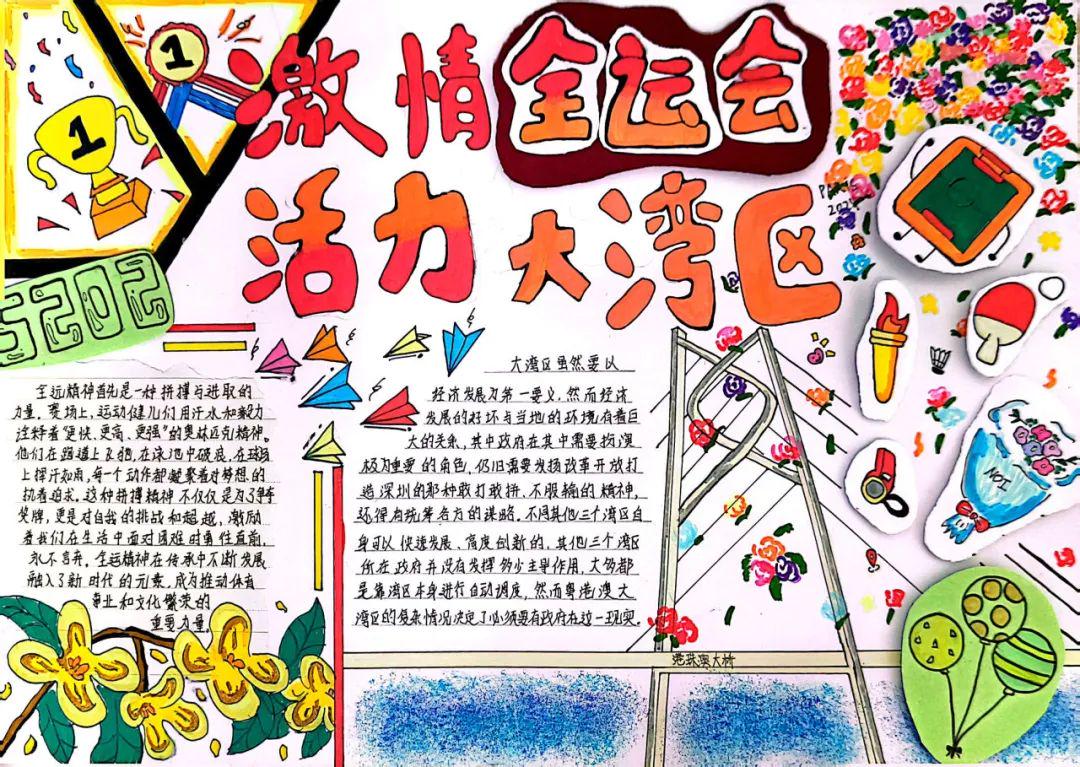 激情全运会
活力大湾区
1
1
5202
全运精神首先是一种拼搏与进取的
力量。赛场上,运动健儿们用汗水和毅力
注释着"更快、更高、更强"的奥林匹克精神。
他们在跑道上飞驰,在泳池中破浪,在球场
上挥汗如雨,每一个动作都凝聚着对梦想的
执着追求。这种拼搏精神不仅仅是为了争夺
奖牌,更是对自我的挑战和超越,激励
着我们在生活中面对困难时勇往直前,
永不言弃。全运精神在传承中不断发展
融入了新时代的元素,成为推动体育
事业和文化繁荣的
重要力量。
大湾区虽然要以
经济发展为第一要义,然而经济
发展的好坏与当地的环境有着巨
大的关系,其中政府在其中需要扮演
极为重要的角色,仍旧需要发扬改革开放打
造深圳的那种敢打敢拼、不服输的精神,
还得有统筹各方的谋略。不同其他三个湾区自
身可以快速发展、高度创新的,其他三个湾区
所在政府并没有发挥多少主导作用,大多都
是靠湾区本身进行自动调度,然而粤港澳大
湾区的复杂情况决定了必须要有政府在这一现实。
港珠澳大桥